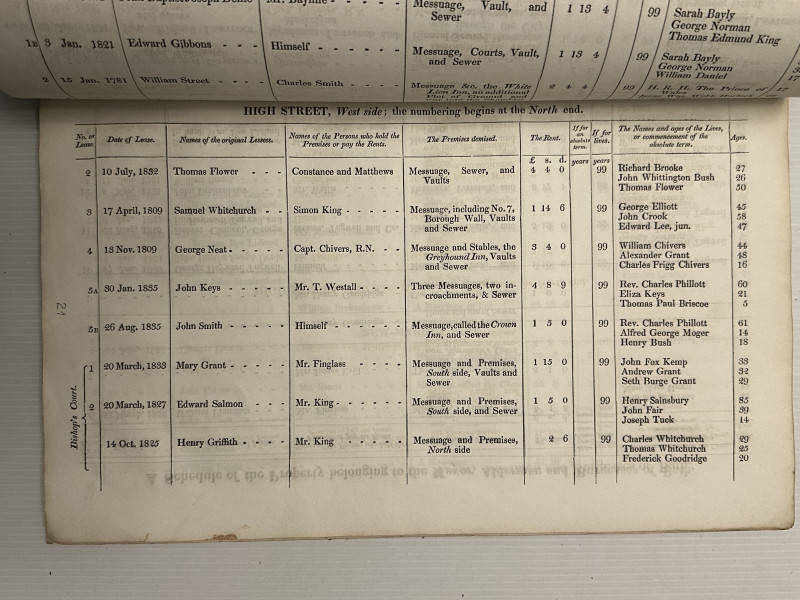 Messuage, Vault, and Sewer 1 13 4 99 Sarah Bayly
George Norman
Thomas Edmund King
1B 3 Jan. 1821 Edward Gibbons - - - Himself - - - - - Messuage, Courts, Vault, and Sewer 1 13 4 99 Sarah Bayly
George Norman
William Daniel
2 15 Jan. 1781 William Street - - - - Charles Smith - - - - Messuage &c. the White Lion Inn, an additional 2 4 4 99 H. R. H. The Prince of Wales 17
HIGH STREET, West side; the numbering begins at the North end.
No. of Lease. Date of Lease. Names of the original Lessees. Names of the Persons who hold the Premises or pay the Rents. The Premises demised. The Rent. If for an absolute term. If for lives. The Names and ages of the Lives, or commencement of the absolute term. Ages.
£ s. d. years years
2 10 July, 1832 Thomas Flower - - - Constance and Matthews Messuage, Sewer, and Vaults 4 4 0 99 Richard Brooke 27
John Whittington Bush 26
Thomas Flower 50
3 17 April, 1809 Samuel Whitchurch - - Simon King - - - - - Messuage, including No. 7, Borough Wall, Vaults and Sewer 1 14 6 99 George Elliott 45
John Crook 58
Edward Lee, jun. 47
4 13 Nov. 1809 George Neat - - - - - Capt. Chivers, R.N. - - Messuage and Stables, the Greyhound Inn, Vaults and Sewer 3 4 0 99 William Chivers 44
Alexander Grant 48
Charles Frigg Chivers 16
5A 30 Jan. 1835 John Keys - - - - - Mr. T. Westall - - - - Three Messuages, two incroachments, & Sewer 4 8 9 99 Rev. Charles Phillott 60
Eliza Keys 21
Thomas Paul Briscoe 5
5B 26 Aug. 1835 John Smith - - - - - Himself - - - - - Messuage, called the Crown Inn, and Sewer 1 5 0 99 Rev. Charles Phillott 61
Alfred George Moger 14
Henry Bush 18
Bishop's Court.
1 20 March, 1833 Mary Grant - - - - - Mr. Finglass - - - - Messuage and Premises, South side, Vaults and Sewer 1 15 0 99 John Fox Kemp 33
Andrew Grant 32
Seth Burge Grant 29
2 20 March, 1827 Edward Salmon - - - Mr. King - - - - - Messuage and Premises, South side, and Sewer 1 5 0 99 Henry Sainsbury 85
John Fair 39
Joseph Tuck 14
14 Oct. 1825 Henry Griffith - - - - Mr. King - - - - - Messuage and Premises, North side 2 6 99 Charles Whitchurch 29
Thomas Whitchurch 25
Frederick Goodridge 20
21